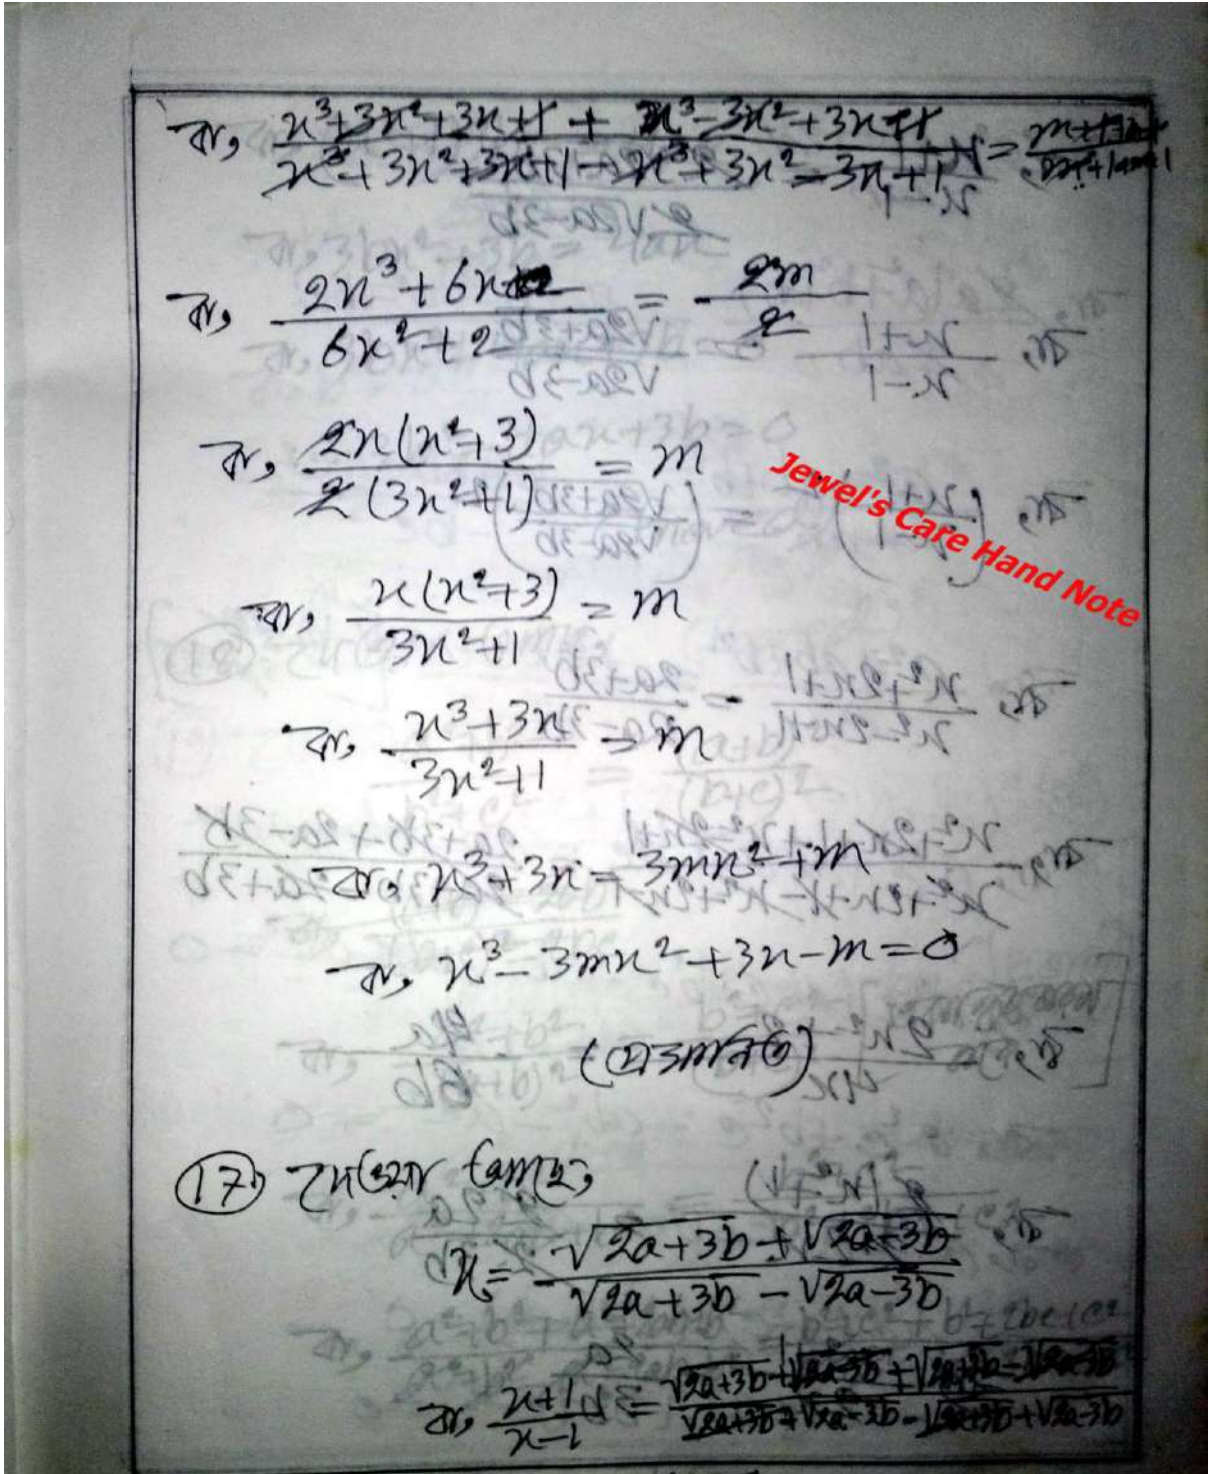 বা, x³+3x²+3x+1 + x³-3x²+3x-1 / x³+3x²+3x+1-x³+3x²-3x+1 =
বা, 2x³+6x / 6x²+2 = 2m / 2
বা, 2x(x²+3) / 2(3x²+1) = m
Jewel's Care Hand Note
বা, x(x²+3) / 3x²+1 = m
বা, x³+3x / 3x²+1 = m
বা, x³+3x = 3mx²+m
বা, x³-3mx²+3x-m=0
(দেখানো হলো)
17) দেওয়া আছে,
x = √2a+3b + √2a-3b / √2a+3b - √2a-3b
বা, x+1 / x-1 = √2a+3b+√2a-3b+√2a+3b-√2a-3b / √2a+3b+√2a-3b-√2a+3b+√2a-3b